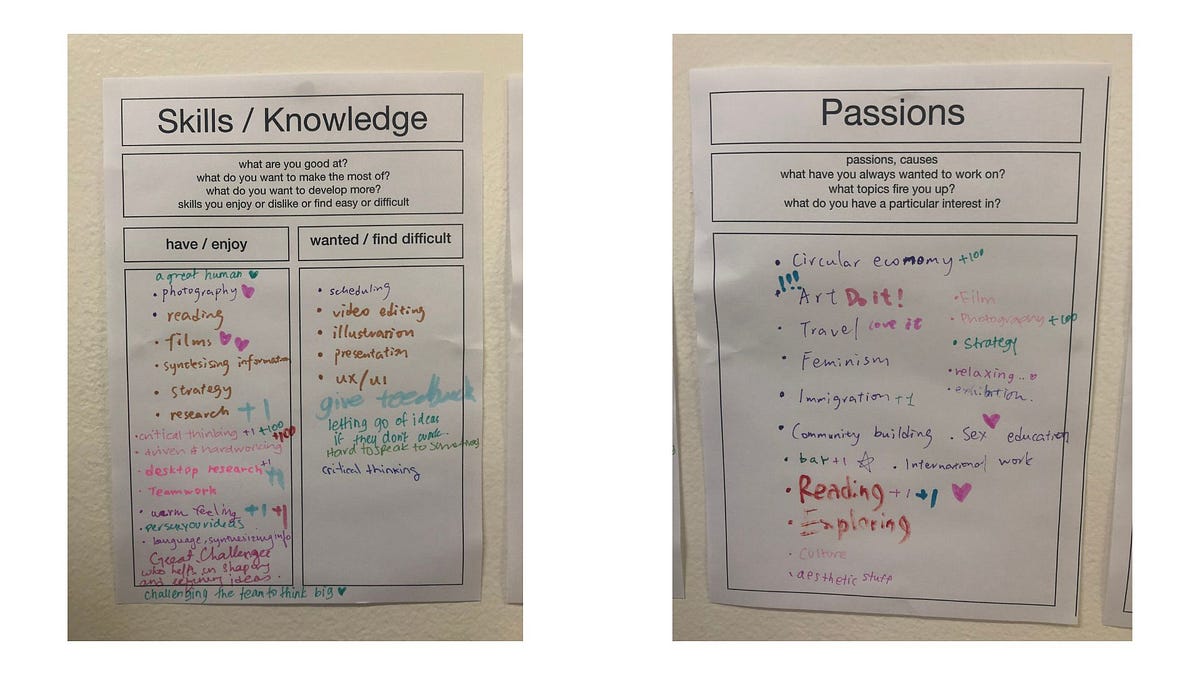 Skills / Knowledge
what are you good at?
what do you want to make the most of?
what do you want to develop more?
skills you enjoy or dislike or find easy or difficult
have / enjoy
a great human
• photography
• reading
• films
• synclesising information
• strategy
• research +1
• critical thinking +1 +100 +100
• driven & hardworking
• desktop research +1 +1
• Teamwork
• warm feeling +1 +1
• language, synthesizing info
Great Challenger
who helps in shaping
and refining ideas.
challenging the team to think big
wanted / find difficult
• scheduling
• video editing
• illustration
• presentation
• ux/ui
give feedback
letting go of ideas
if they don't work.
Hard to speak to
critical thinking
Passions
passions, causes
what have you always wanted to work on?
what topics fire you up?
what do you have a particular interest in?
• Circular economy +100
!!!
• Art Do it!
• Travel love it
• Feminism
• Immigration +1
• Community building
• bar +1
• Reading +1 +1
• Exploring
• Culture
• aesthetic stuff
• Film
• Photography +100
• Strategy
• relaxing...
• exhibition.
• Sex education
• International work